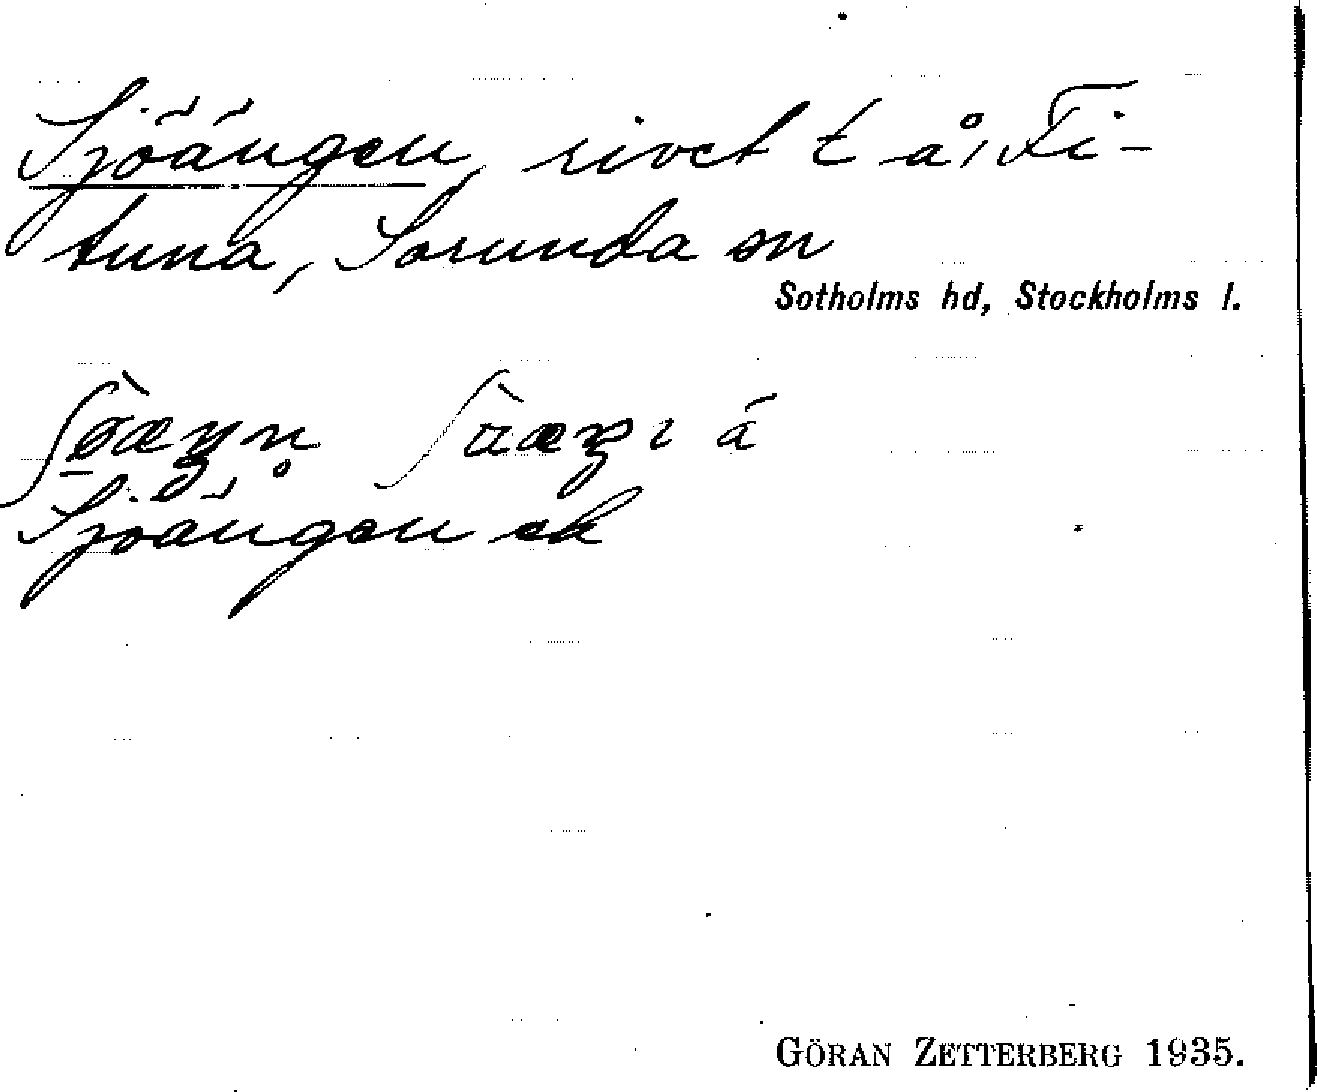 Sjöängen, rivet t å, Fi-
tuna, Sorunda sn
Sotholms hd, Stockholms l.
Sjöängen ek
GÖRAN ZETTERBERG 1935.